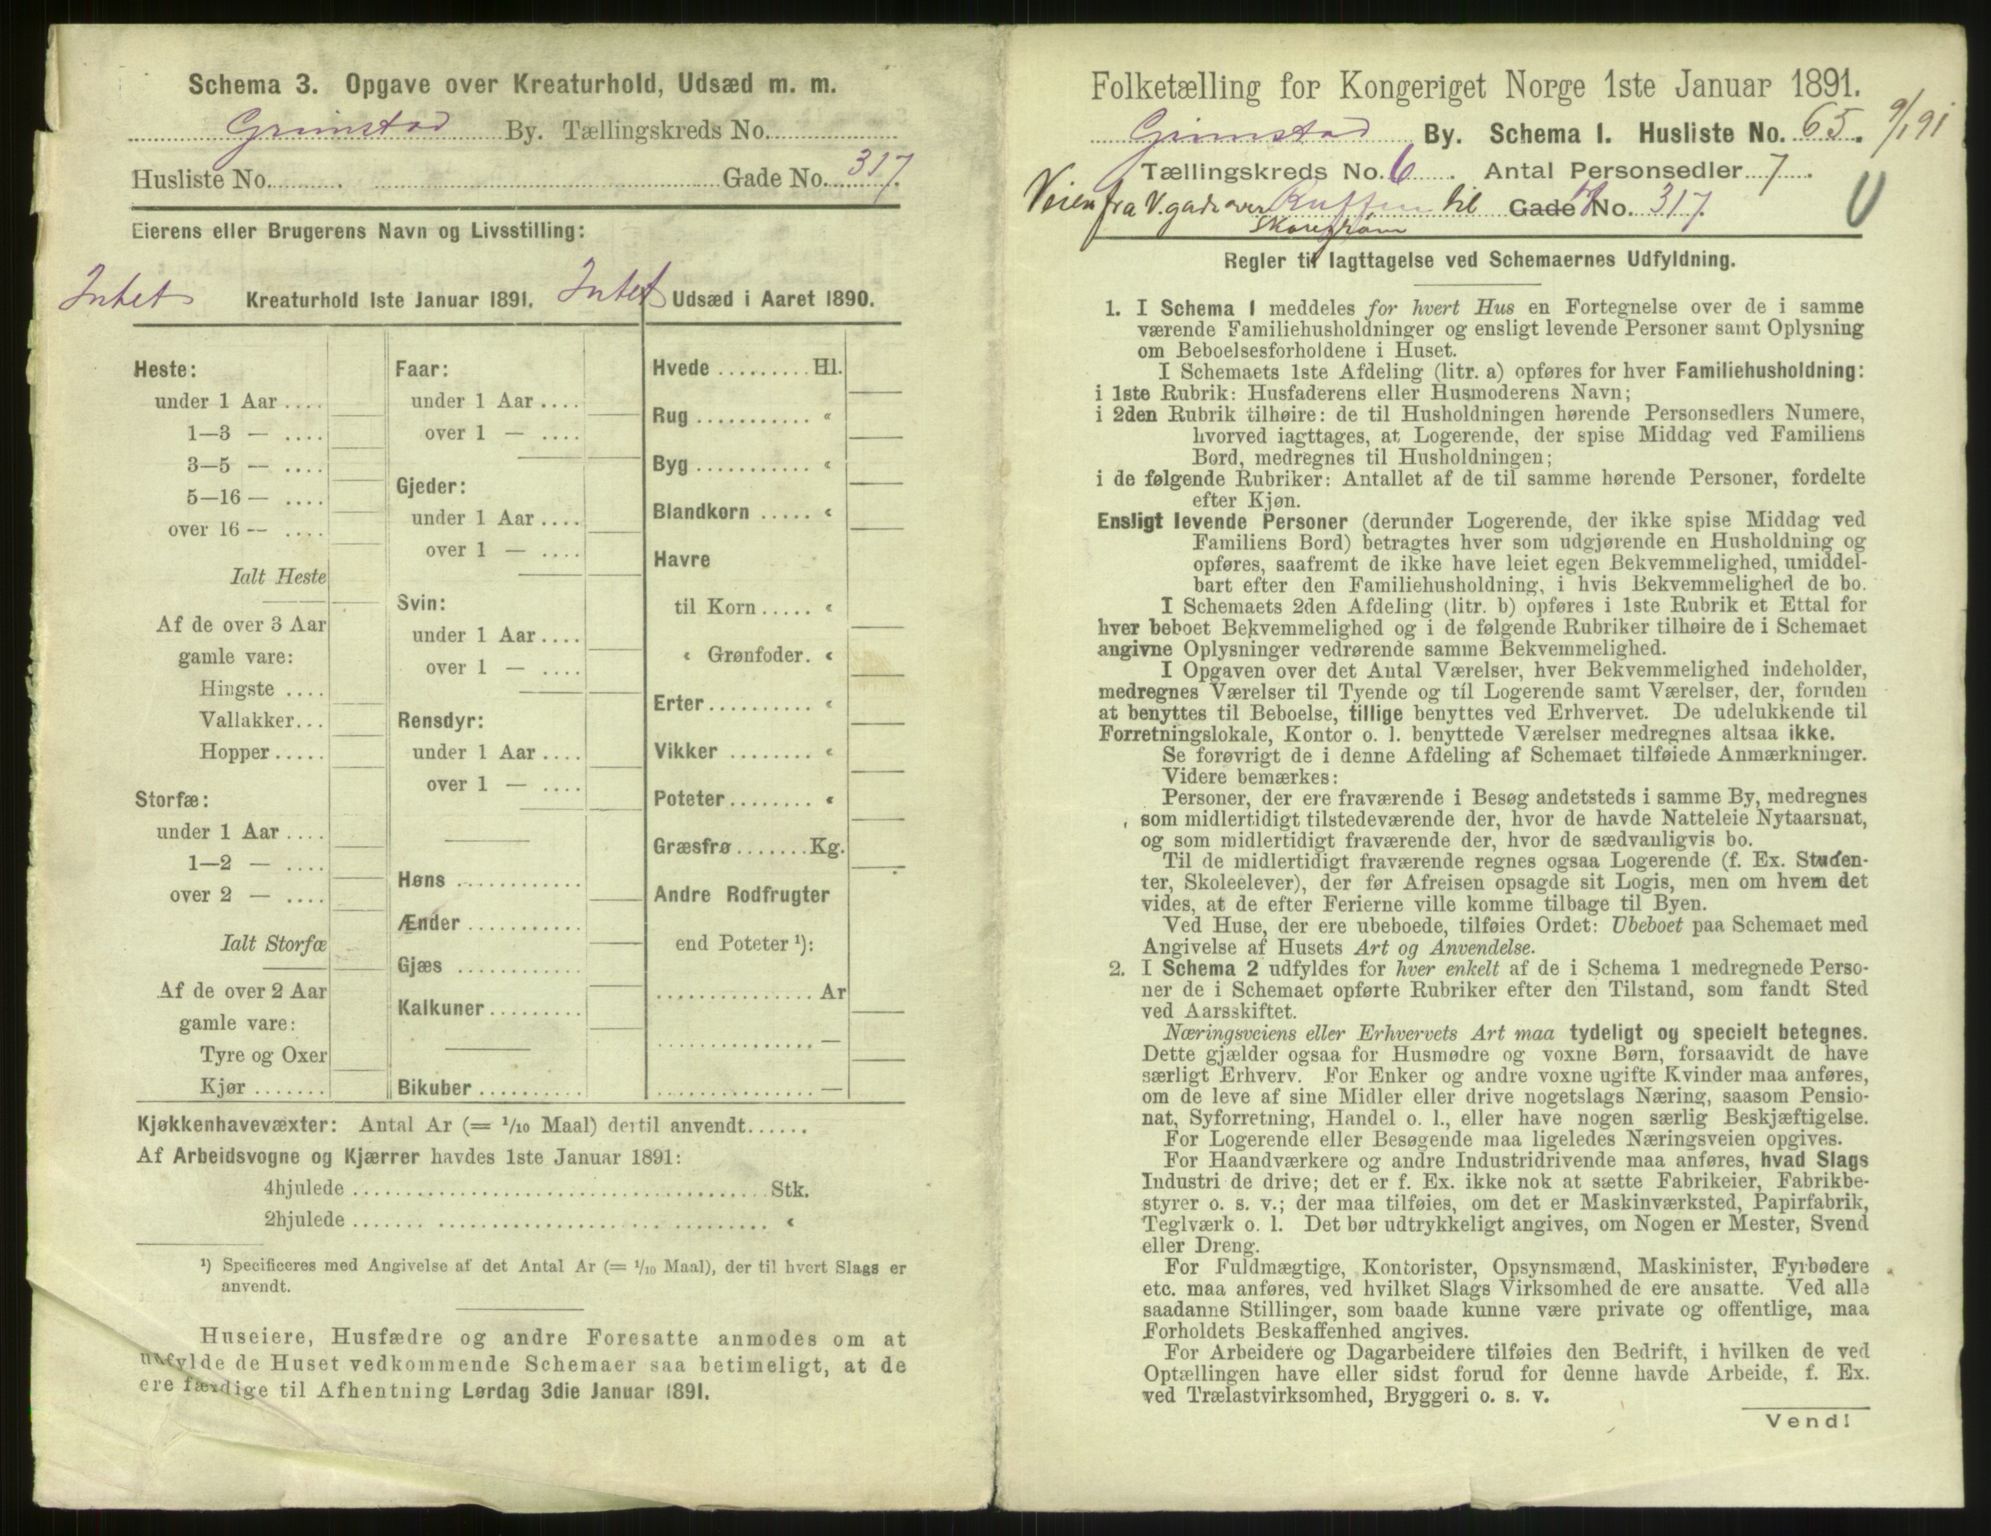 Schema 3. Opgave over Kreaturhold, Udsæd m. m.
Grimstad By. Tællingskreds No.
Husliste No. Gade No. 317.
Eierens eller Brugerens Navn og Livsstilling:
Intet Kreaturhold 1ste Januar 1891. Intet Udsæd i Aaret 1890.
Heste:
under 1 Aar ....
1—3 — ....
3—5 — ....
5—16 — ....
over 16 — ....
Ialt Heste
Af de over 3 Aar
gamle vare:
Hingste ....
Vallakker...
Hopper .....
Storfæ:
under 1 Aar ....
1—2 — ....
over 2 — ....
Ialt Storfæ
Af de over 2 Aar
gamle vare:
Tyre og Oxer
Kjør .......
Faar:
under 1 Aar ....
over 1 — ....
Gjeder:
under 1 Aar ....
over 1 — ....
Svin:
under 1 Aar ....
over 1 — ....
Rensdyr:
under 1 Aar ....
over 1 — ....
Høns ............
Ænder ...........
Gjæs ............
Kalkuner.........
Bikuber ..........
Hvede ......... Hl.
Rug ........... «
Byg ........... «
Blandkorn ..... «
Havre
til Korn ..... «
« Grønfoder. «
Erter .......... «
Vikker ........ «
Poteter ........ «
Græsfrø ....... Kg.
Andre Rodfrugter
end Poteter ¹):
............... Ar
............... —
............... —
Kjøkkenhavevæxter: Antal Ar (= 1/10 Maal) dertil anvendt......
Af Arbeidsvogne og Kjærrer havdes 1ste Januar 1891:
4hjulede ........................................ Stk.
2hjulede ........................................ «
¹) Specificeres med Angivelse af det Antal Ar (= 1/10 Maal), der til hvert Slags er
anvendt.
Huseiere, Husfædre og andre Foresatte anmodes om at
udfylde de Huset vedkommende Schemaer saa betimeligt, at de
ere færdige til Afhentning Lørdag 3die Januar 1891.
Folketælling for Kongeriget Norge 1ste Januar 1891.
Grimstad By. Schema 1. Husliste No. 65. 9/1 91
Tællingskreds No. 6. Antal Personsedler 7.
Veien fra V. gade over til Gade No. 317.
Regler til Iagttagelse ved Schemaernes Udfyldning.
1. I Schema 1 meddeles for hvert Hus en Fortegnelse over de i samme
værende Familiehusholdninger og ensligt levende Personer samt Oplysning
om Beboelsesforholdene i Huset.
I Schemaets 1ste Afdeling (litr. a) opføres for hver Familiehusholdning:
i 1ste Rubrik: Husfaderens eller Husmoderens Navn;
i 2den Rubrik tilhøire: de til Husholdningen hørende Personsedlers Numere,
hvorved iagttages, at Logerende, der spise Middag ved Familiens
Bord, medregnes til Husholdningen;
i de følgende Rubriker: Antallet af de til samme hørende Personer, fordelte
efter Kjøn.
Ensligt levende Personer (derunder Logerende, der ikke spise Middag ved
Familiens Bord) betragtes hver som udgjørende en Husholdning og
opføres, saafremt de ikke have leiet egen Bekvemmelighed, umiddel-
bart efter den Familiehusholdning, i hvis Bekvemmelighed de bo.
I Schemaets 2den Afdeling (litr. b) opføres i 1ste Rubrik et Ettal for
hver beboet Bekvemmelighed og i de følgende Rubriker tilhøire de i Schemaet
angivne Oplysninger vedrørende samme Bekvemmelighed.
I Opgaven over det Antal Værelser, hver Bekvemmelighed indeholder,
medregnes Værelser til Tyende og til Logerende samt Værelser, der, foruden
at benyttes til Beboelse, tillige benyttes ved Erhvervet. De udelukkende til
Forretningslokale, Kontor o. l. benyttede Værelser medregnes altsaa ikke.
Se forøvrigt de i denne Afdeling af Schemaet tilføiede Anmærkninger.
Videre bemærkes:
Personer, der ere fraværende i Besøg andetsteds i samme By, medregnes
som midlertidigt tilstedeværende der, hvor de havde Natteleie Nytaarsnat,
og som midlertidigt fraværende der, hvor de sædvanligvis bo.
Til de midlertidigt fraværende regnes ogsaa Logerende (f. Ex. Studen-
ter, Skoleelever), der før Afreisen opsagde sit Logis, men om hvem det
vides, at de efter Ferierne ville komme tilbage til Byen.
Ved Huse, der ere ubeboede, tilføies Ordet: Ubeboet paa Schemaet med
Angivelse af Husets Art og Anvendelse.
2. I Schema 2 udfyldes for hver enkelt af de i Schema 1 medregnede Perso-
ner de i Schemaet opførte Rubriker efter den Tilstand, som fandt Sted
ved Aarsskiftet.
Næringsveiens eller Erhvervets Art maa tydeligt og specielt betegnes.
Dette gjælder ogsaa for Husmødre og voxne Børn, forsaavidt de have
særligt Erhverv. For Enker og andre voxne ugifte Kvinder maa anføres,
om de leve af sine Midler eller drive nogetslags Næring, saasom Pensio-
nat, Syforretning, Handel o. l., eller have nogen særlig Beskjæftigelse.
For Logerende eller Besøgende maa ligeledes Næringsveien opgives.
For Haandværkere og andre Industridrivende maa anføres, hvad Slags
Industri de drive; det er f. Ex. ikke nok at sætte Fabrikeier, Fabrikbe-
styrer o. s. v.; der maa tilføies, om det er Maskinværksted, Papirfabrik,
Teglværk o. l. Det bør udtrykkeligt angives, om Nogen er Mester, Svend
eller Dreng.
For Fuldmægtige, Kontorister, Opsynsmænd, Maskinister, Fyrbødere
etc. maa anføres, ved hvilket Slags Virksomhed de ere ansatte. Ved alle
saadanne Stillinger, som baade kunne være private og offentlige, maa
Forholdets Beskaffenhed angives.
For Arbeidere og Dagarbeidere tilføies den Bedrift, i hvilken de ved
Optællingen have eller sidst forud for denne havde Arbeide, f. Ex.
ved Trælastvirksomhed, Bryggeri o. s. v.
Vend!